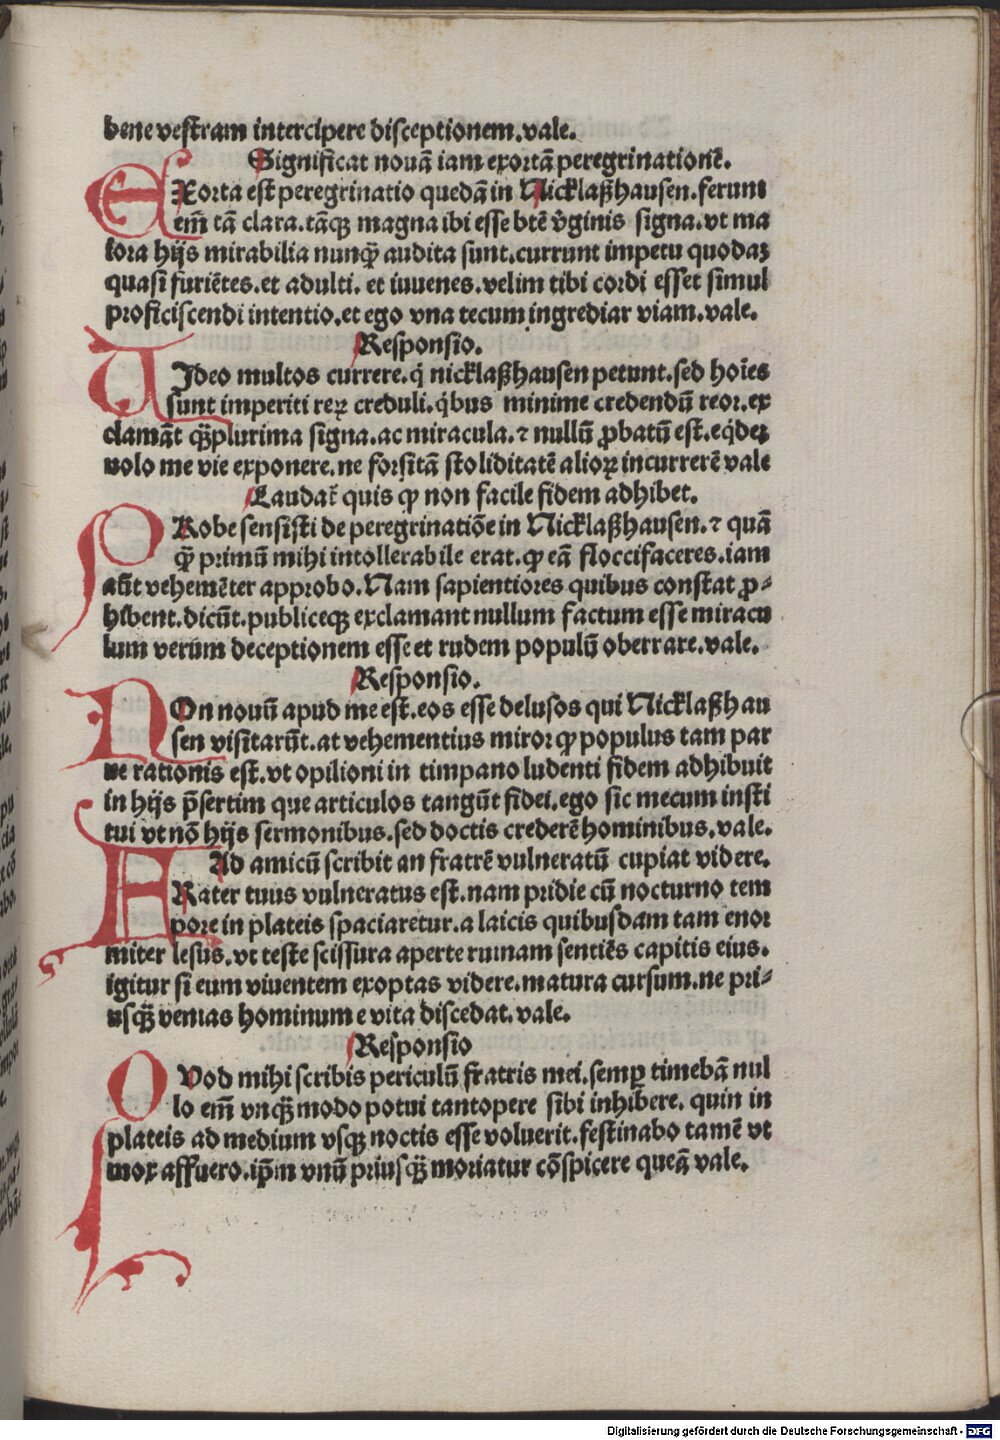 bene vestram intercipere disceptionem.vale.
Significat nouā iam exortā peregrinationē.
EXorta est peregrinatio quedā in Nicklaßhausen.ferunt
em̄ tā clara.tāqꝫ magna ibi esse btē v̄ginis signa.vt ma
iora hijs mirabilia nunqꝫ̄ audita sunt.currunt impetu quodaꝫ
quasi furiētes.et adulti. et iuuenes.velim tibi cordi esset simul
proficiscendi intentio.et ego vna tecum ingrediar viam.vale.
Responsio.
VIdeo multos currere.q̇ nicklaßhausen petunt.sed hoīes
sunt imperiti reꝝ creduli.q̇bus minime credendū reor.ex
clamāt qꝫ̄plurima signa.ac miracula.⁊ nullū ꝓbatū est.eq̇deꝫ
volo me vie exponere.ne forsitā stoliditatē alioꝝ incurrerē vale
Laudat᷑ quis ꝙ non facile fidem adhibet.
PRobe sensisti de peregrinatiōe in Nicklaßhausen.⁊ quā
qꝫ̄ primū mihi intollerabile erat.ꝙ eā floccifaceres.iam
aūt vehemēter approbo.Nam sapientiores quibus constat ꝓ-
hibent.dicūt.publiceqꝫ exclamant nullum factum esse miracu
lum verum deceptionem esse et rudem populū oberrare.vale.
Responsio.
NOn nouū apud me est.eos esse delusos qui Nicklaßhau
sen visitarūt.at vehementius miror ꝙ populus tam par
ue rationis est.vt opilioni in timpano ludenti fidem adhibuit
in hijs p̄sertim que articulos tangūt fidei.ego sic mecum insti
tui vt nō hijs sermonibus.sed doctis crederē hominibus.vale.
Ad amicū scribit an fratrē vulneratū cupiat videre.
FRater tuus vulneratus est.nam pridie cū nocturno tem
pore in plateis spaciaretur.a laicis quibusdam tam enor
miter lesus.vt teste scissura aperte ruinam sentiēs capitis eius.
igitur si eum viuentem exoptas videre.matura cursum.ne pri-
usqꝫ̄ venias hominum e vita discedat.vale.
Responsio
QVod mihi scribis periculū fratris mei.semꝑ timebā nul
lo em̄ vnqꝫ̄ modo potui tantopere sibi inhibere. quin in
plateis ad medium vsqꝫ noctis esse voluerit.festinabo tamē vt
mox affuero.ip̄m vnū priusqꝫ̄ moriatur cōspicere queā vale.
Digitalisierung gefördert durch die Deutsche Forschungsgemeinschaft - DFG